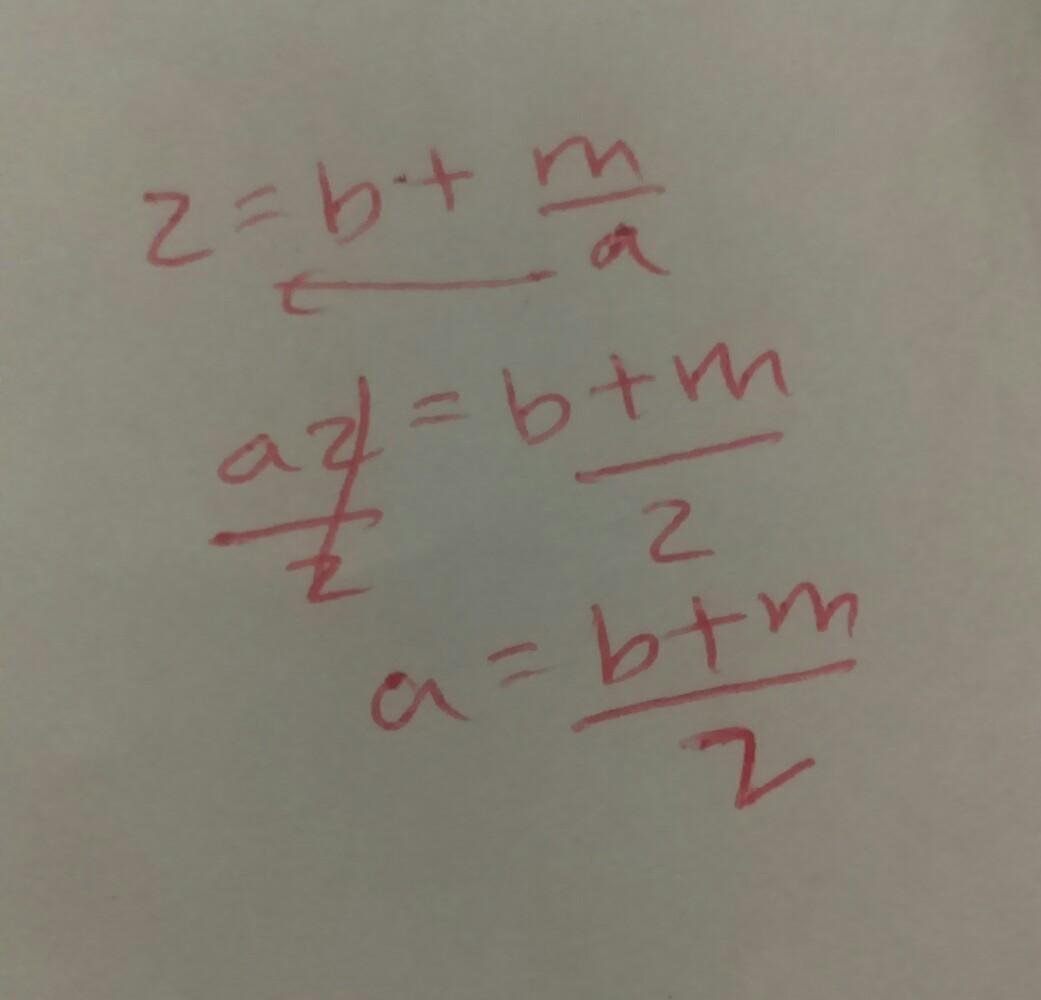 z = b + m/a
az/z = b + m/z
a = b + m/z